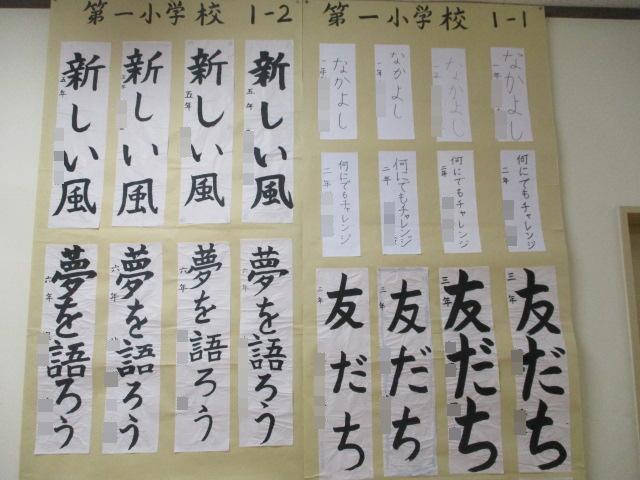 第一小学校 1-1
なかよし
一年
なかよし
一年
なかよし
一年
なかよし
一年
何にでもチャレンジ
二年
何にでもチャレンジ
二年
何にでもチャレンジ
二年
何にでもチャレンジ
二年
友だち
三年
友だち
三年
友だち
三年
友だち
三年
第一小学校 1-2
新しい風
五年
新しい風
五年
新しい風
五年
新しい風
五年
夢を語ろう
六年
夢を語ろう
六年
夢を語ろう
六年
夢を語ろう
六年